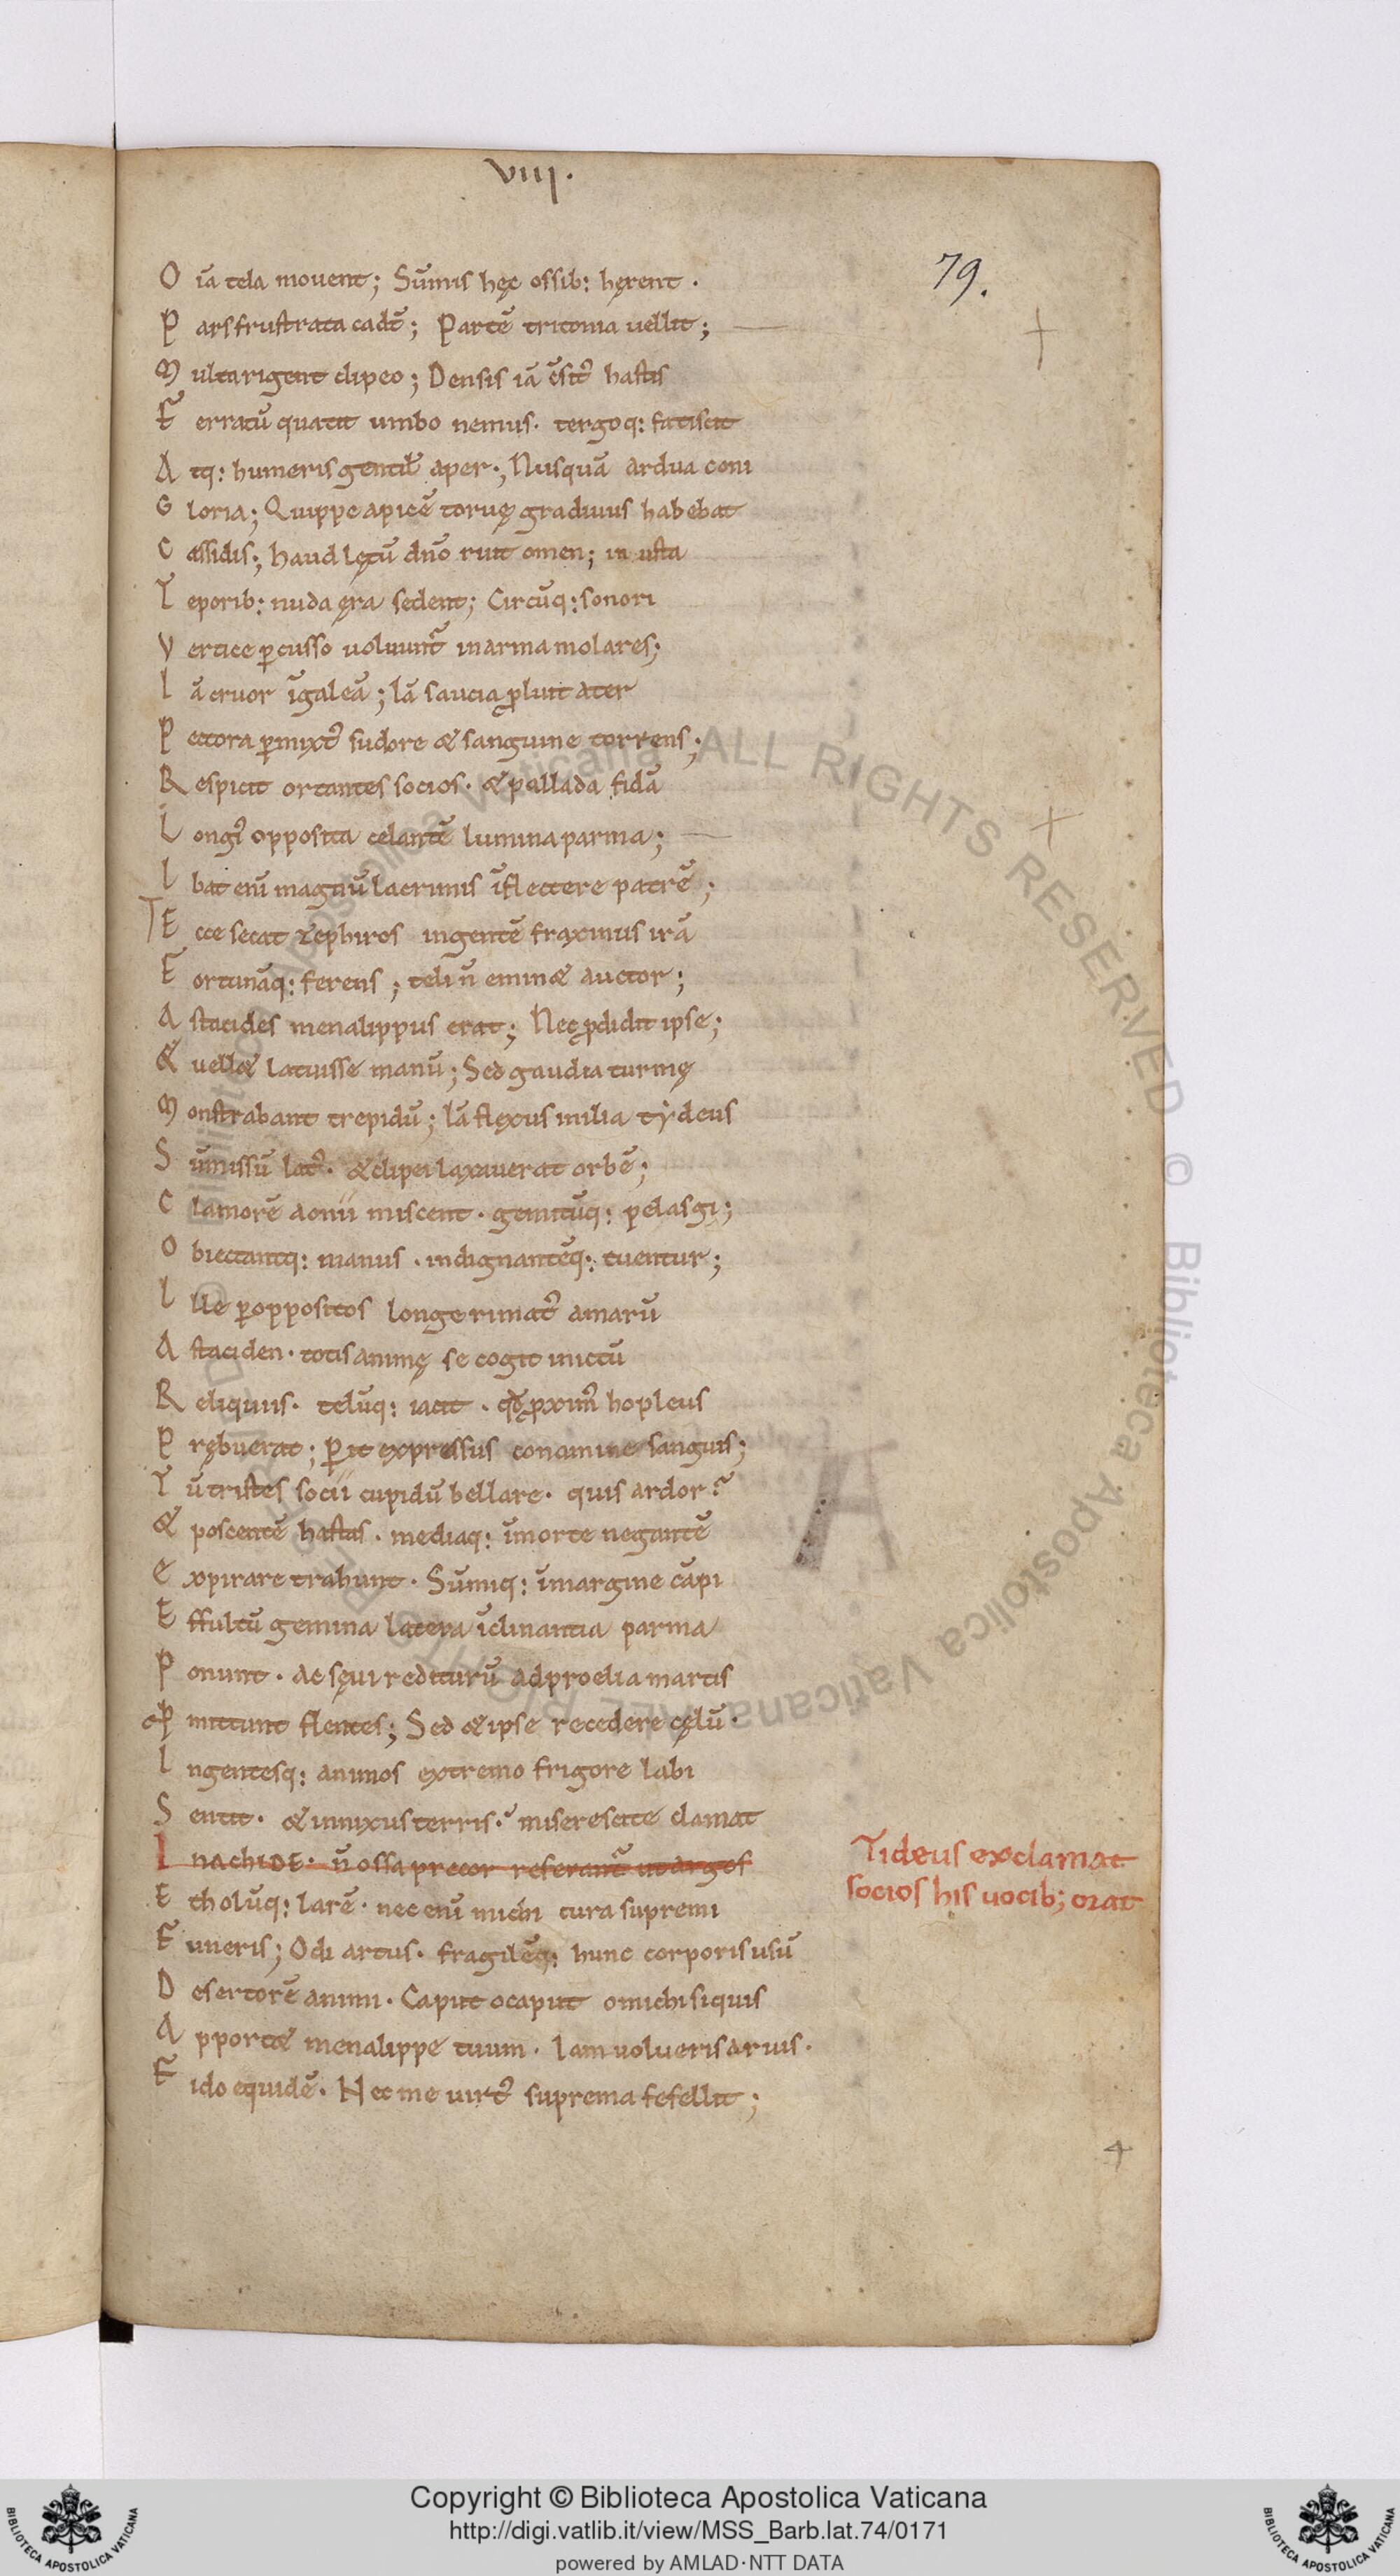 VIII.
79.
O īa tela mouent; Sūmis hęc ossib: hęrent.
P ars frustrata cadt̄; Partē tritonia uellit;
M ulta rigent clipeo; Densis iā c̄sit᷒ hastis
F erratū quatit umbo nemus. tergoq: fatiscit
A tq: humeris gentił aper.; Nusquā ardua coni
G loria; Quippe apicē toruę gradiuus habebat
C assidis; haud lętū dn̄o ruit omen; inusta
T eporib: nuda ęra sedent; Circūq: sonori
V ertice ꝑcusso uoluunt᷑ in arma molares;
I ā cruor īgaleā; Iā saucia ꝓluit ater
P ectora ꝑmixt᷒ sudore & sanguine torrens;
R espicit ortantes socios. & pallada fidā
L ongi᷒ opposita celantē lumina parma;
I bat enī magnū lacrimis īflectere patrē;
E cce secat zephiros ingentē fraxinus irā
F ortunāq: ferens; teli n̄ emin& auctor;
A stacides menalippus erat; Nec ꝓdidit ipse;
& uell& latuisse manū; Sed gaudia turmę
M onstrabant trepidū; Iā flexus in ilia tydeus
S ūmissū lat᷒. & clipei laxauerat orbē;
C lamorē aonii miscent. gemitūq: pelasgi;
O biectantq: manus. indignantēq: tuentur;
I lle ꝑoppositos longe rimat᷒ amarū
A staciden. totis animę se cogit in ictū
R eliquiis. telūq: iacit. qđ ꝓxim᷒ hopleus
P rębuerat; ꝑit expressus conamine sanguis;
T ū tristes socii cupidū bellare. quis ardor?
& poscentē hastas. mediaq: īmorte negantē
E xpirare trahunt. Sūmiq: īmargine cāpi
E ffultū gemina latera īclinantia parma
P onunt. ac sęui rediturū ad proelia martis
P mittunt flentes; Sed & ipse recedere cęlū.
I ngentesq: animos extremo frigore labi
S entit. & innixus terris.; miserescite clamat
I NACHIDE. n̄ ossa precor referant᷑ ut argos
E tholūq: larē. nec enī michi cura supremi
F uneris; Odi artus. fragilēq: hunc corporis usū
D esertorē animi. Caput o caput o michi siquis
A pport& menalippe tuum. Iam uolueris aruis.
F ido equidē. Nec me uirt᷒ suprema fefellit;
Tideus exclamat
socios his uocib; orat
A
Copyright © Biblioteca Apostolica Vaticana
http://digi.vatlib.it/view/MSS_Barb.lat.74/0171
powered by AMLAD·NTT DATA
BIBLIOTECA APOSTOLICA VATICANA
BIBLIOTECA APOSTOLICA VATICANA